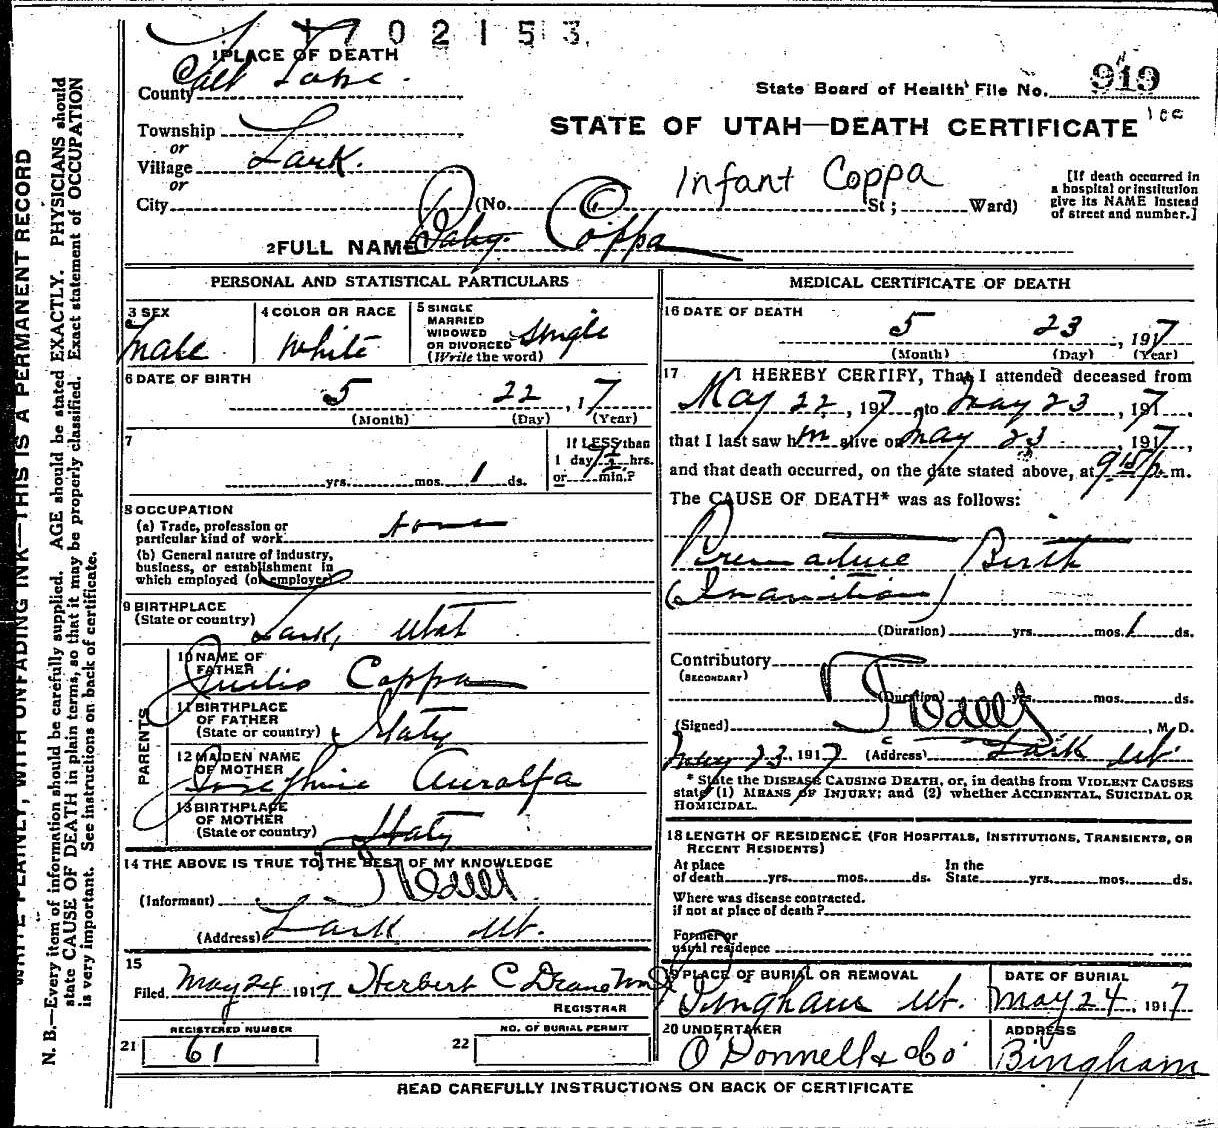 1702153
1 PLACE OF DEATH
County Salt Lake.
State Board of Health File No. 919
STATE OF UTAH—DEATH CERTIFICATE
Township
or
Village Lark.
or
City (No. St; Ward)
Infant Coppa
[If death occurred in
a hospital or institution
give its NAME instead
of street and number.]
2 FULL NAME Baby Coppa
PERSONAL AND STATISTICAL PARTICULARS
3 SEX
Male
4 COLOR OR RACE
White
5 SINGLE
MARRIED
WIDOWED
OR DIVORCED
(Write the word)
Single
6 DATE OF BIRTH
5 22, 17
(Month) (Day) (Year)
7
yrs. mos. 1 ds.
If LESS than
1 day hrs.
or min.?
8 OCCUPATION
(a) Trade, profession or
particular kind of work
(b) General nature of industry,
business, or establishment in
which employed (or employer)
9 BIRTHPLACE
(State or country)
Lark, Utah
PARENTS
10 NAME OF
FATHER
Coppa
11 BIRTHPLACE
OF FATHER
(State or country)
Italy
12 MAIDEN NAME
OF MOTHER
Josephine
13 BIRTHPLACE
OF MOTHER
(State or country)
Italy
14 THE ABOVE IS TRUE TO THE BEST OF MY KNOWLEDGE
(Informant)
(Address) Lark Ut.
15
Filed May 24 1917 Herbert C
REGISTRAR
REGISTERED NUMBER
21 61
NO. OF BURIAL PERMIT
22
MEDICAL CERTIFICATE OF DEATH
16 DATE OF DEATH
5 23, 1917
(Month) (Day) (Year)
17 I HEREBY CERTIFY, That I attended deceased from
May 22, 1917, to May 23, 1917,
that I last saw him alive on May 23, 1917,
and that death occurred, on the date stated above, at 9 15 p. m.
The CAUSE OF DEATH* was as follows:
Premature Birth
(Inanition)
(Duration) yrs. mos. 1 ds.
Contributory
(SECONDARY)
(Duration) yrs. mos. ds.
(Signed) , M. D.
May 23, 1917 (Address) Lark Ut
* State the DISEASE CAUSING DEATH, or, in deaths from VIOLENT CAUSES
state (1) MEANS OF INJURY; and (2) whether ACCIDENTAL, SUICIDAL OR
HOMICIDAL.
18 LENGTH OF RESIDENCE (FOR HOSPITALS, INSTITUTIONS, TRANSIENTS, OR
RECENT RESIDENTS)
At place
of death yrs. mos. ds.
In the
State yrs. mos. ds.
Where was disease contracted.
if not at place of death?
Former or
usual residence
19 PLACE OF BURIAL OR REMOVAL
Bingham Ut.
DATE OF BURIAL
May 24, 1917
20 UNDERTAKER
O'Donnell & Co
ADDRESS
Bingham
READ CAREFULLY INSTRUCTIONS ON BACK OF CERTIFICATE
WRITE PLAINLY, WITH UNFADING INK—THIS IS A PERMANENT RECORD
N. B.—Every item of information should be carefully supplied. AGE should be stated EXACTLY. PHYSICIANS should
state CAUSE OF DEATH in plain terms, so that it may be properly classified. Exact statement of OCCUPATION
is very important. See instructions on back of certificate.